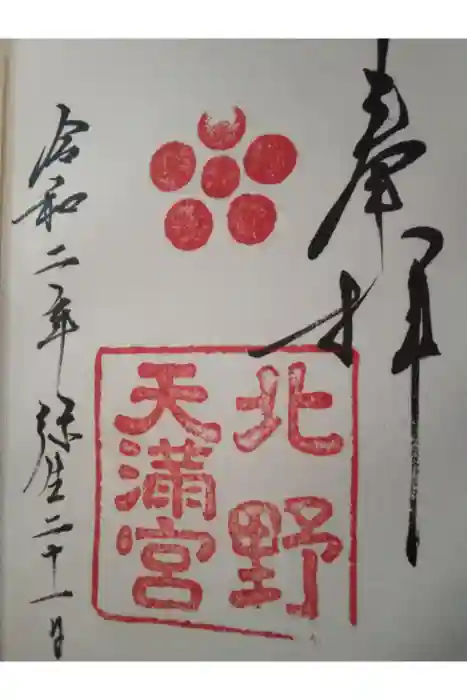 奉拝
北野
天満宮
令和二年弥生二十一日